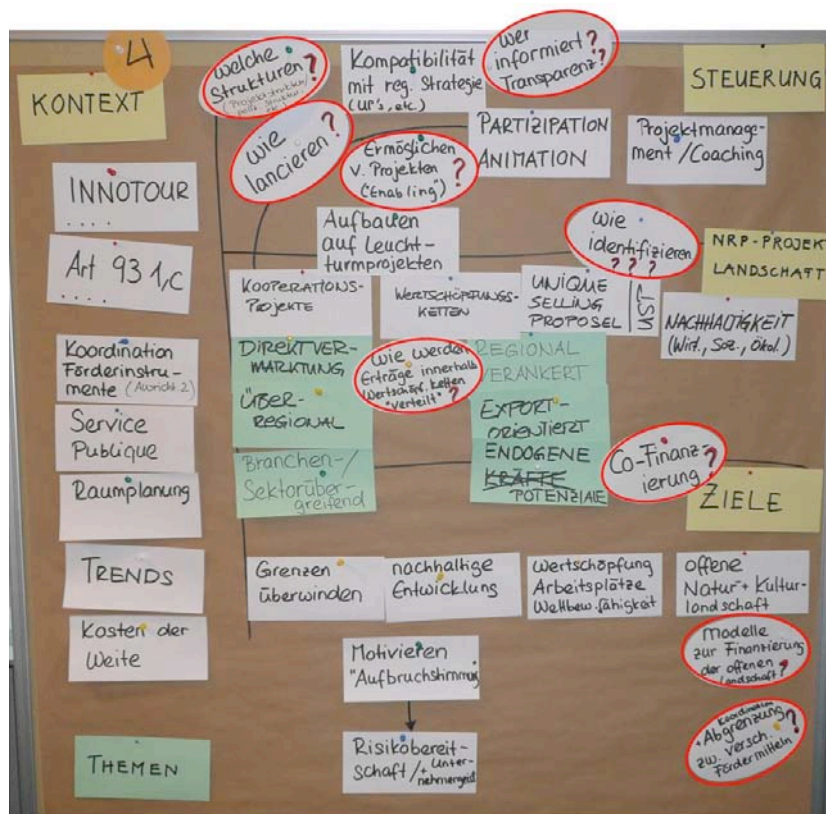 4
KONTEXT
INNOTOUR
....
Art 93 1,c
....
Koordination
Förderinstru-
mente (Ausricht. 2)
Service
Publique
Raumplanung
TRENDS
Kosten der
Weite
THEMEN
Welche
Strukturen?
(Projektstruktur/
etc.)
Kompatibilität
mit reg. Strategie
(UP's, etc.)
Wer
informiert?
Transparenz?
STEUERUNG
wie
lancieren?
Ermöglichen
v. Projekten
("Enabling")?
PARTIZIPATION
ANIMATION
Projektmanage-
ment/Coaching
Aufbauen
auf Leucht-
turmprojekten
wie
identifizieren
???
NRP-PROJEKT
LANDSCHAFT
KOOPERATIONS-
PROJEKTE
WERTSCHÖPFUNGS-
KETTEN
UNIQUE
SELLING
PROPOSEL
USP
NACHHALTIGKEIT
(Wirt., Soz., Ökol.)
DIREKTVER-
MARKTUNG
wie werden
Erträge innerhalb
Wertschöpf.ketten
"verteilt"?
REGIONAL
VERANKERT
ÜBER-
REGIONAL
EXPORT-
ORIENTIERT
Branchen-/
Sektorüber-
greifend
ENDOGENE
KRÄFTE
POTENZIALE
Co-Finanz-
ierung?
ZIELE
Grenzen
überwinden
nachhaltige
Entwicklung
Wertschöpfung
Arbeitsplätze
Wettbew.fähigkeit
offene
Natur- + Kultur-
landschaft
Motivieren
"Aufbruchstimmung
Risikobereit-
schaft/+Unter-
nehmergeist
Modelle
zur Finanzierung
der offenen
Landschaft?
Koordination
+ Abgrenzung
zw. versch.
Fördermitteln?